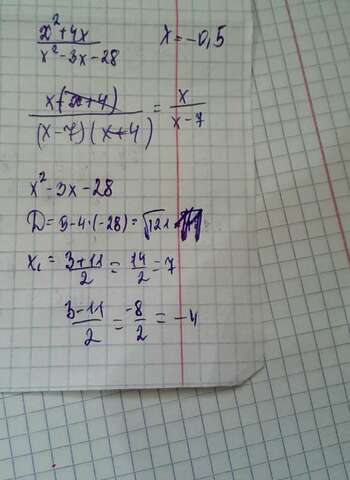 x²+4x / x²-3x-28 x=-0,5
x(x+4) / (x-7)(x+4) = x / x-7
x²-3x-28
D=9-4·(-28)=√121
x₁=3+11 / 2=14 / 2=7
3-11 / 2=-8 / 2=-4